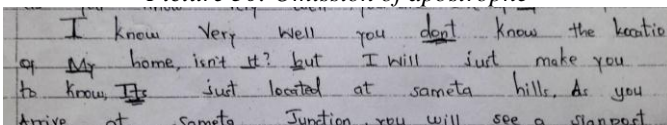 Picture 30: Omission of apostrophe
I know Very Well you dont know the locatio
of My home, isn't It? but I will just make you
to know, Its just located at sameta hills. As you
Arrive at Sameta Junction, you will see a signpost